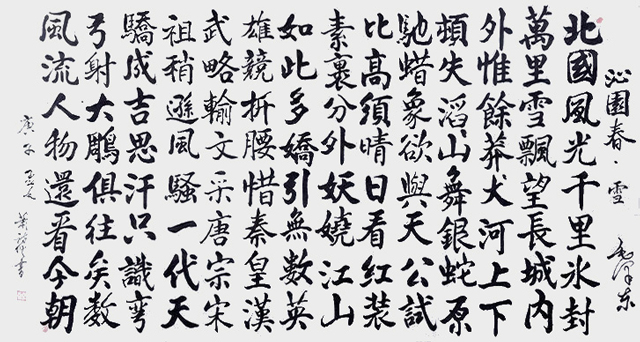 沁園春·雪
毛澤東
北國風光千里冰封
萬里雪飄望長城內
外惟餘莽大河上下
頓失滔山舞銀蛇原
馳蜡象欲與天公試
比高須晴日看紅裝
素裹分外妖嬈江山
如此多嬌引無數英
雄競折腰惜秦皇漢
武略輸文采唐宗宋
祖稍遜風騷一代天
驕成吉思汗只識彎
弓射大鵰俱往矣數
風流人物還看今朝
庚子
書